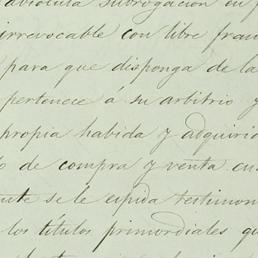 absoluta subrogacion en f
irrevocable con libre fran
para que disponga de la
pertenece á su arbitrio y
propia habida y adquirid
o de compra y venta cu
se le espida testimon
los títulos primordiales qu